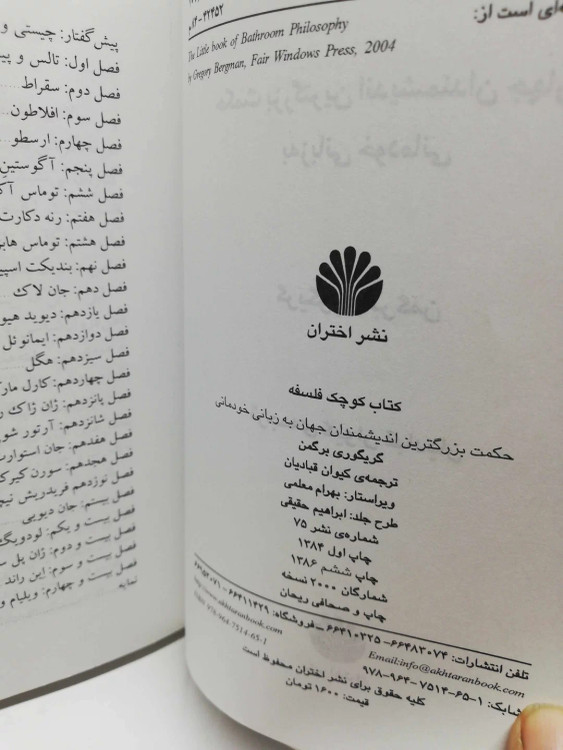 ه‌ای است از:
The Little book of Bathroom Philosophy
by Gregory Bergman, Fair Windows Press, 2004
نشر اختران
کتاب کوچک فلسفه
حکمت بزرگترین اندیشمندان جهان به زبانی خودمانی
گریگوری برگمن
ترجمه‌ی کیوان قبادیان
ویراستار: بهرام معلمی
طرح جلد: ابراهیم حقیقی
شماره‌ی نشر ۷۵
چاپ اول ۱۳۸۴
چاپ ششم ۱۳۸۶
شمارگان ۲۰۰۰ نسخه
چاپ و صحافی ریحان
تلفن انتشارات: ۶۶۴۸۳۰۷۴ـ۶۶۴۱۰۳۲۵ ـ فروشگاه: ۶۶۴۱۱۴۲۹ـ
Email:info@akhtaranbook.com
http://www.akhtaranbook.com
شابک: ۱-۶۵-۷۵۱۴-۹۶۴-۹۷۸
ISBN: 978-964-7514-65-1
کلیه حقوق برای نشر اختران محفوظ است
قیمت: ۱۶۰۰ تومان
پیش‌گفتار: چیستی و
فصل اول: تالس و
فصل دوم: سقراط
فصل سوم: افلاطون
فصل چهارم: ارسطو
فصل پنجم: آگوستین
فصل ششم: توماس
فصل هفتم: رنه دکارت
فصل هشتم: توماس
فصل نهم: بندیکت
فصل دهم: جان لاک
فصل یازدهم: دیوید
فصل دوازدهم: ایمانوئل
فصل سیزدهم: هگل
فصل چهاردهم: کارل
فصل پانزدهم: ژان ژاک
فصل شانزدهم: آرتور
فصل هفدهم: جان استوارت
فصل هجدهم: سورن
فصل نوزدهم فریدریش
فصل بیستم: جان دیویی
فصل بیست و یکم: لودویگ
فصل بیست و دوم: ژان پل
فصل بیست و سوم: این راند
فصل بیست و چهارم: ویلیام
نمایه